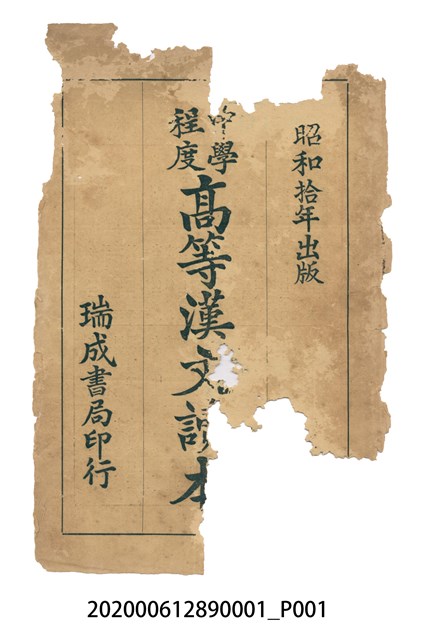 昭和拾年出版
學程度
高等漢文讀本
瑞成書局印行
202000612890001_P001